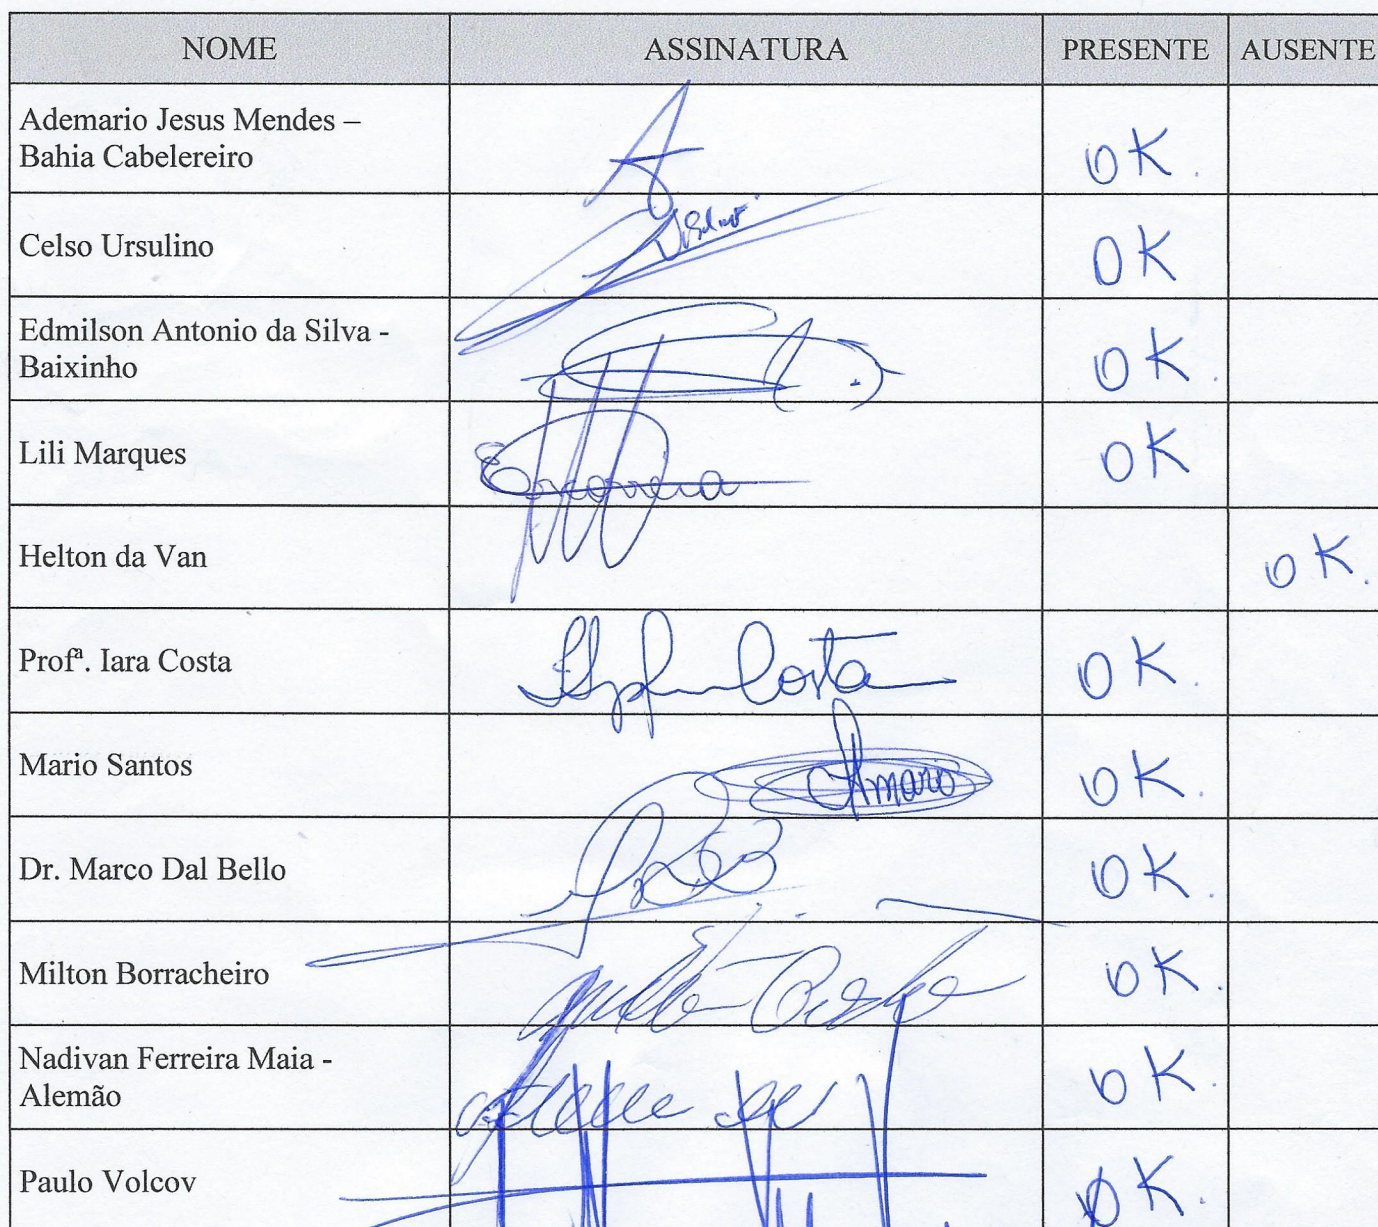 NOME ASSINATURA PRESENTE AUSENTE
Ademario Jesus Mendes –
Bahia Cabelereiro OK.
Celso Ursulino OK
Edmilson Antonio da Silva -
Baixinho OK.
Lili Marques OK
Helton da Van OK.
Profª. Iara Costa Costa OK.
Mario Santos OK.
Dr. Marco Dal Bello OK.
Milton Borracheiro OK.
Nadivan Ferreira Maia -
Alemão OK.
Paulo Volcov OK.